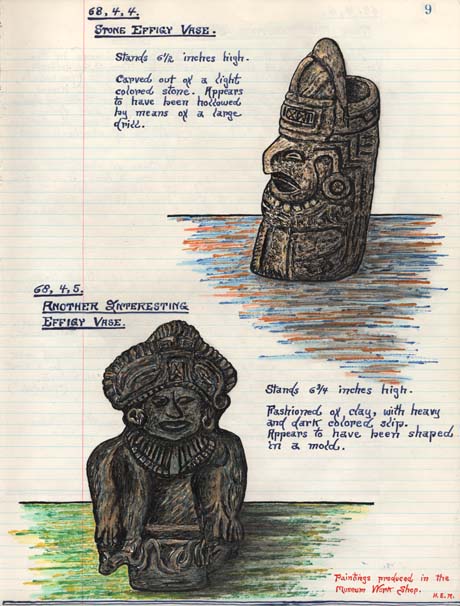 9
68, 4, 4.
STONE EFFIGY VASE.
Stands 6 1/2 inches high.
Carved out of a light
colored stone. Appears
to have been hollowed
by means of a large
drill.
68, 4, 5.
ANOTHER INTERESTING
EFFIGY VASE.
Stands 6 3/4 inches high.
Fashioned of clay, with heavy
and dark colored slip.
Appears to have been shaped
in a mold.
Paintings produced in the
Museum Work Shop.